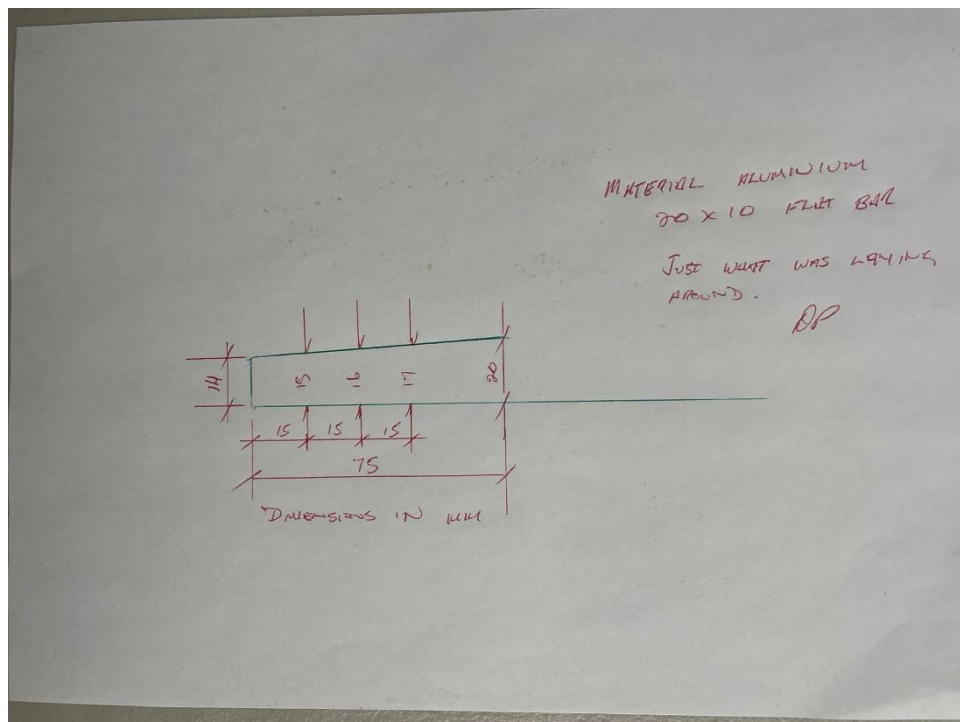 MATERIAL ALUMINIUM
20 X 10 FLAT BAR
JUST WHAT WAS LAYING
AROUND.
DP
14
15
16
17
20
15 15 15
75
DIMENSIONS IN MM